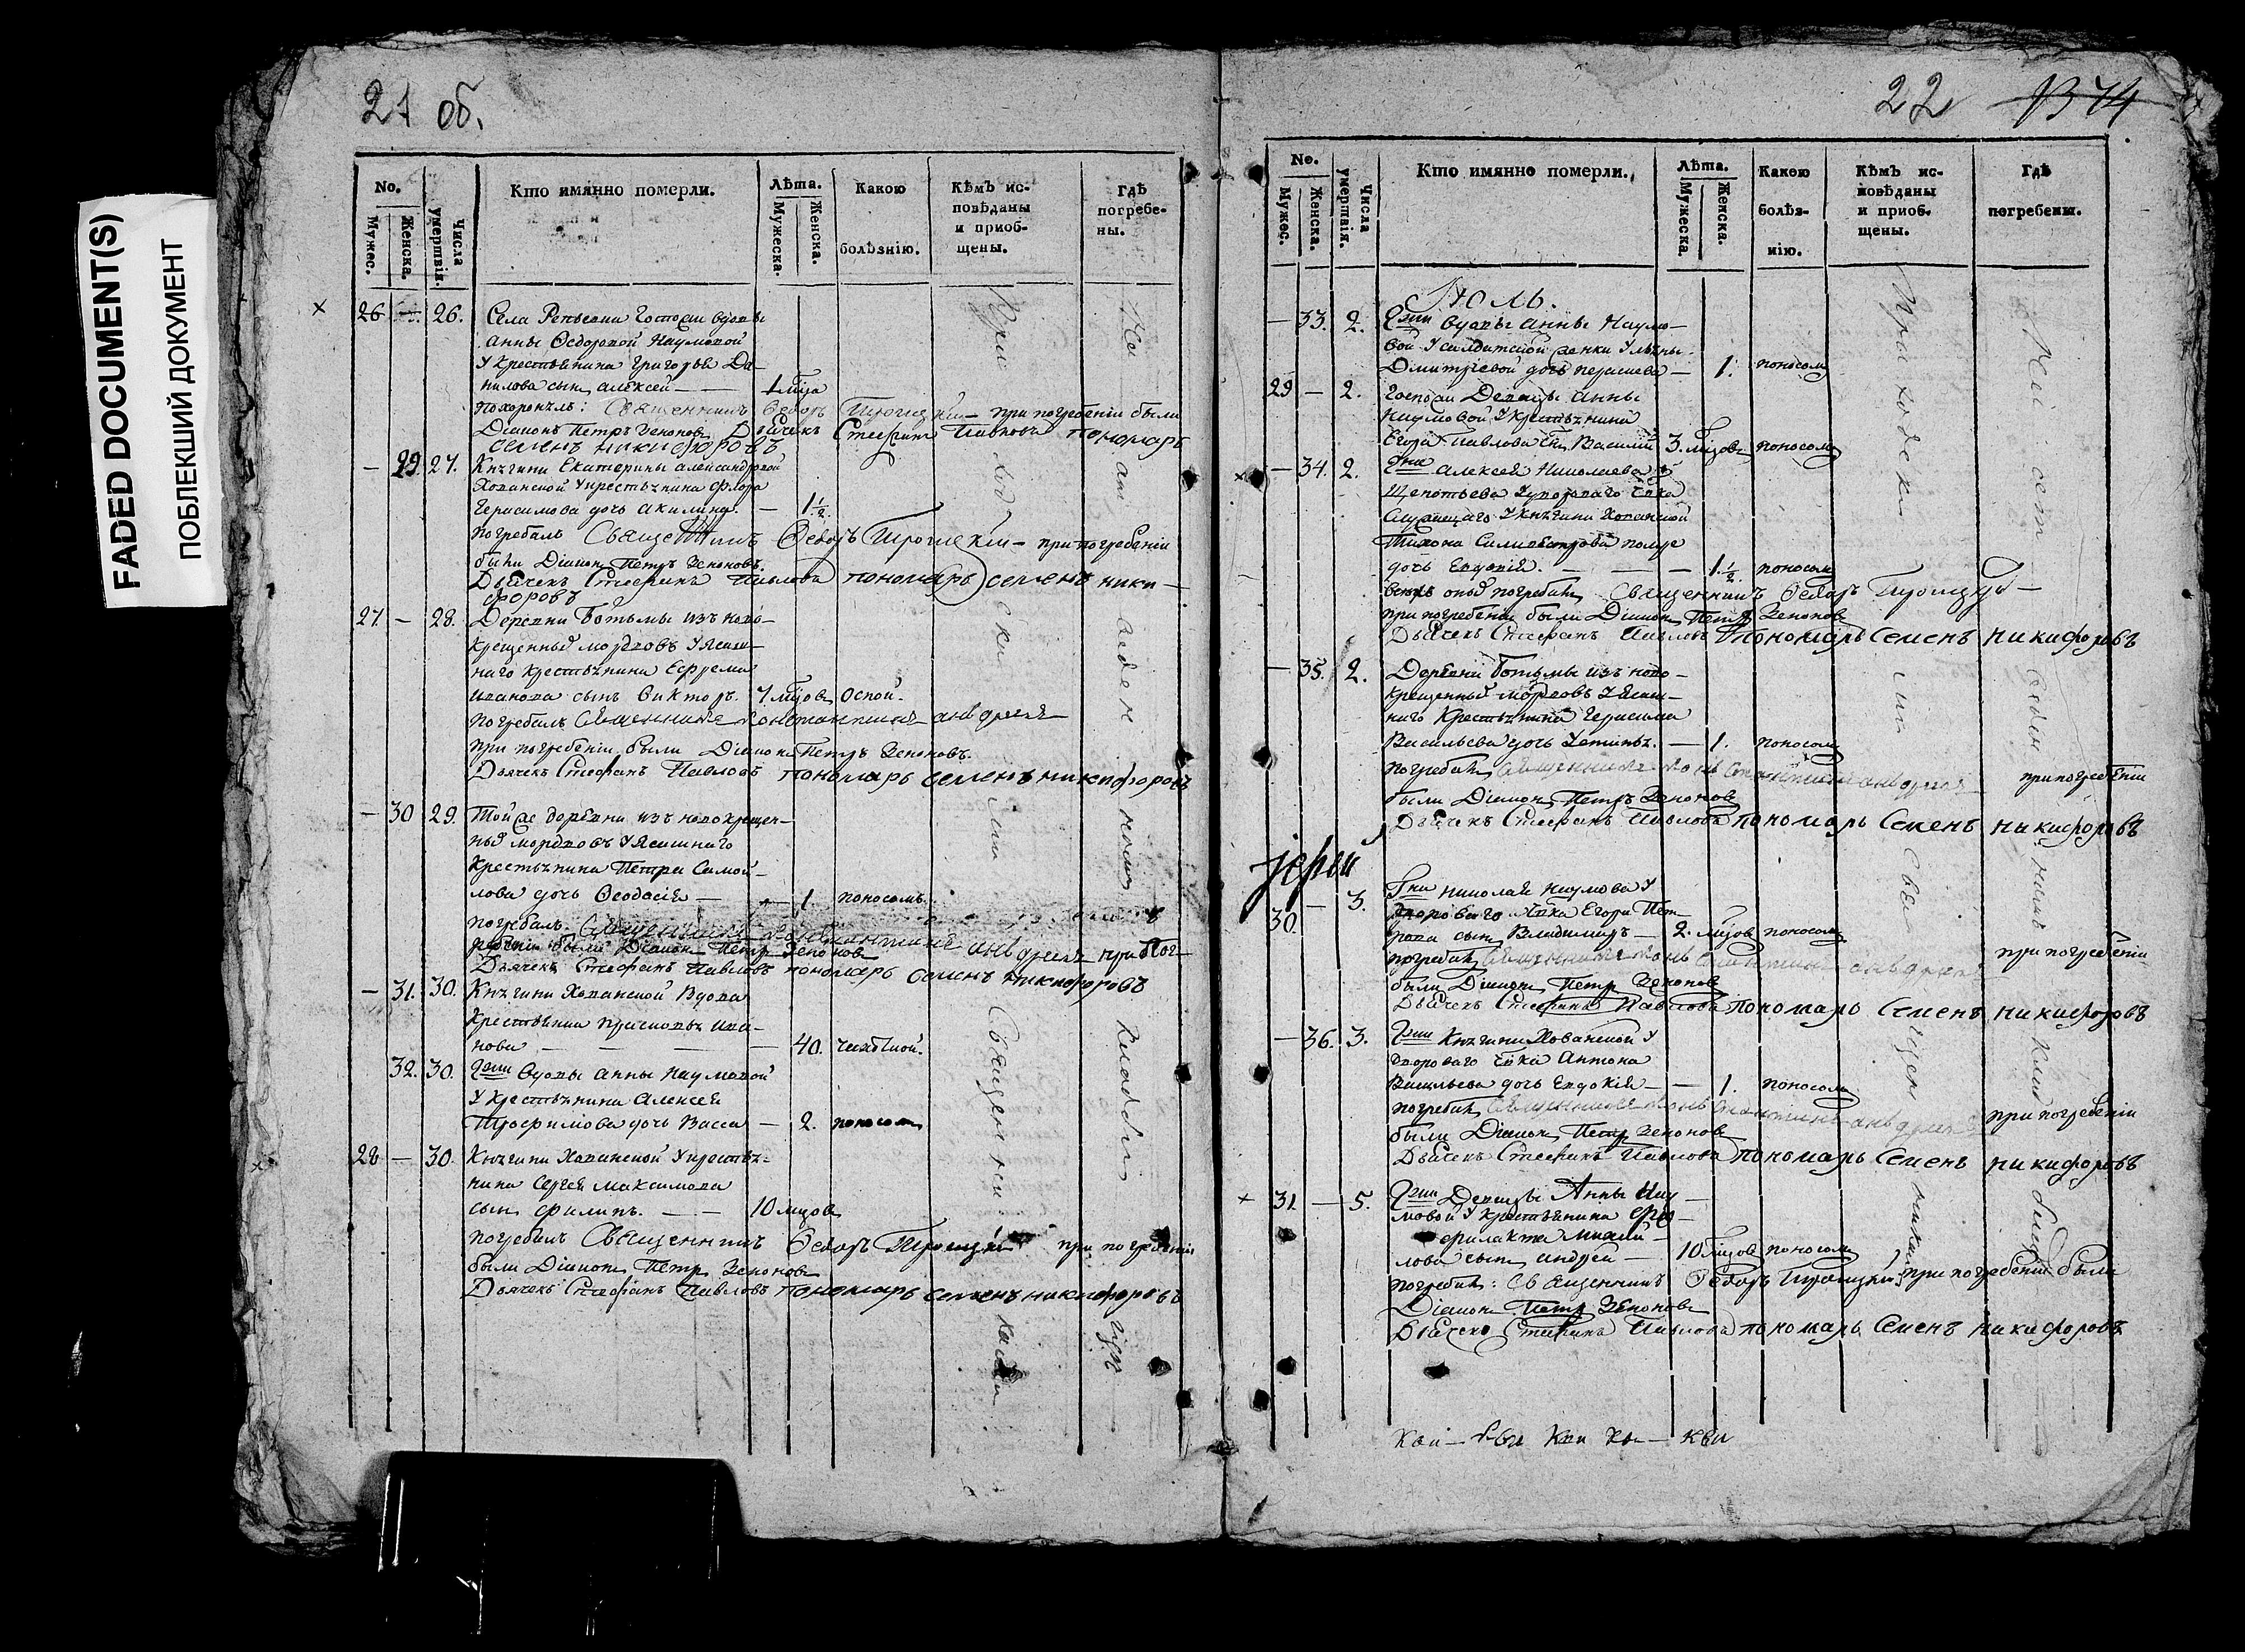 FADED DOCUMENT(S)
ПОБЛЕКШИЙ ДОКУМЕНТ
21 об.
No.
Мужес.
Женска.
Числа умертвія.
Кто имянно померли.
Лѣта.
Мужеска.
Женска.
Какою болѣзнію.
Кѣмъ исповѣданы и пріобщены.
Гдѣ погребены.
26 — 26. Села Репьевки Госпожи вдовы
Анны Ѳедоровой Наумовой
у крестьянина Григорья Да-
нилова сынъ Алексей — 1 мѣца
похоронилъ: Священникъ Ѳедоръ Троицкій — при погребеніи были
Діаконъ Петръ Зеноновъ Дьячекъ Стефанъ Павловъ пономарь
семенъ никифоровъ
— 29 27. Княгини Екатерины Александровой
Хованской у крестьянина Флора
Герасимова дочь Акилина. — 1 1/2.
погребалъ Священникъ Ѳедоръ Троицкій — при погребеніи
были Діаконъ Петръ Зеноновъ.
Дьячекъ Стефанъ Павловъ пономарь семенъ ники—
форовъ
27 — 28. Деревни Ботьмы изъ ново-
крещенныхъ мордовъ у Ясаш-
наго крестьянина Ефрема
Иванова сынъ Викторъ. 7 мѣцовъ Оспой.
погребалъ Священникъ Константинъ Андреевъ
при погребеніи были Діаконъ Петръ Зеноновъ.
Дьячекъ Стефанъ Павловъ пономарь семенъ никифоровъ
— 30 29. Той же деревни изъ новокрещен-
ныхъ мордовъ у Ясашнаго
крестьянина Петра Самой-
лова дочь Ѳеодосія — — 1. поносомъ.
погребалъ Священникъ Константинъ Андреевъ при пог-
ребеніи были Діаконъ Петръ Зеноновъ
Дьячекъ Стефанъ Павловъ пономарь семенъ никифоровъ
— 31. 30. Княгини Хованской вдова
крестьянка Ива-
нова — — — 40. чахоткой.
32. 30. Гжи вдовы Анны Наумовой
у крестьянина Алексея
Трофимова дочь Васса — 2. поносомъ
28 — 30. Княгини Хованской у крестья-
нина Сергея Максимова
сынъ Филипъ. — — 10 мѣцовъ
погребалъ Священникъ Ѳедоръ Троицкій при погребеніи
были Діаконъ Петръ Зеноновъ
Дьячекъ Стефанъ Павловъ пономарь семенъ никифоровъ
Приходски Священники
На кладби
22
No.
Мужес.
Женска.
Числа умертвія.
Кто имянно померли.
Лѣта.
Мужеска.
Женска.
Какою болѣзнію.
Кѣмъ исповѣданы и пріобщены.
Гдѣ погребены.
Июль.
— 33. 2. Гжи вдовы Анны Наумо-
вой у салдатской женки Ульяны
Дмитріевой дочь — 1. поносомъ
29 — 2. Госпожи Девицы Анны
Наумовой у крестьянина
Егора Павлова сынъ Василій 3. мѣцовъ поносомъ
— 34. 2. Гна Алексея Николаева
у двороваго чѣлка
у Княгини Хованской
Тихона Силивестрова
дочь Евдокія. — — — 1 1/2. поносомъ
погребалъ Священникъ Ѳедоръ Троицкій —
при погребеніи были Діаконъ Петръ Зеноновъ
Дьячекъ Стефанъ Павловъ Пономарь Семенъ никифоровъ
— 35. 2. Деревни Ботьмы изъ ново-
крещенныхъ мордовъ у Ясаш-
наго крестьянина Герасима
Васильева дочь — 1. поносомъ
погребалъ Священникъ Константинъ Андреевъ при погребеніи
были Діаконъ Петръ Зеноновъ
Дьячекъ Стефанъ Павловъ пономарь Семенъ никифоровъ
іерей
30. — 3. Гна Николая Наумова у
двороваго чѣлка Егора Пет-
рова сынъ Владимиръ — 2. мѣцовъ поносомъ
погребалъ Священникъ Константинъ Андреевъ при погребеніи
были Діаконъ Петръ Зеноновъ
Дьячекъ Стефанъ Павловъ пономарь Семенъ никифоровъ
— 36. 3. Гжи Княгини Хованской у
двороваго чѣлка Антона
Васильева дочь Евдокія — — 1. поносомъ
погребалъ Священникъ Константинъ Андреевъ при погребеніи
были Діаконъ Петръ Зеноновъ
Дьячекъ Стефанъ Павловъ пономарь Семенъ никифоровъ
31. — 5. Гжи Девицы Анны Нау—
мовой у крестьянина
Филакта Михай-
лова сынъ Андрей — 10 мѣцовъ поносомъ
погребалъ: Священникъ Ѳедоръ Троицкій при погребеніи были
Діаконъ Петръ Зеноновъ
Дьячекъ Стефанъ Павловъ пономарь Семенъ никифоровъ
Приходски Священники